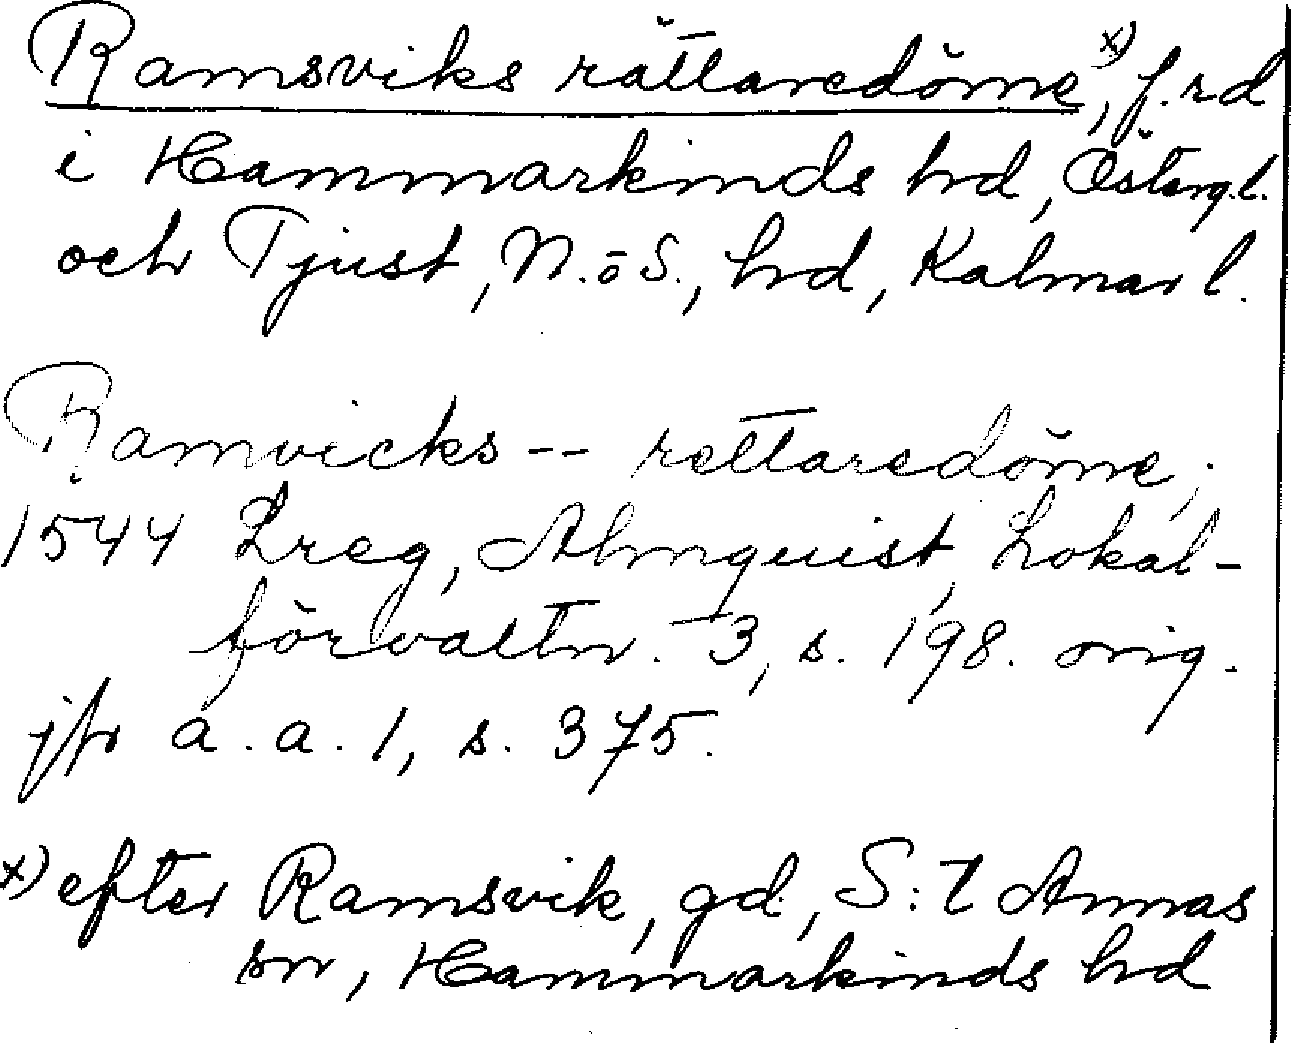 Ramsviks rättaredöme x), f.rd
i Hammarkinds hrd, Österg.l.
och Tjust, N. o S., hrd, Kalmar l.
Ramvicks -- rettaredöme;
1544 Lreg, Almquist, Lokal-
förvaltn. 3, s. 198. orig.
jfr a. a. 1, s. 375.
x) efter Ramsvik, gd, S:t Annas
sn, Hammarkinds hrd